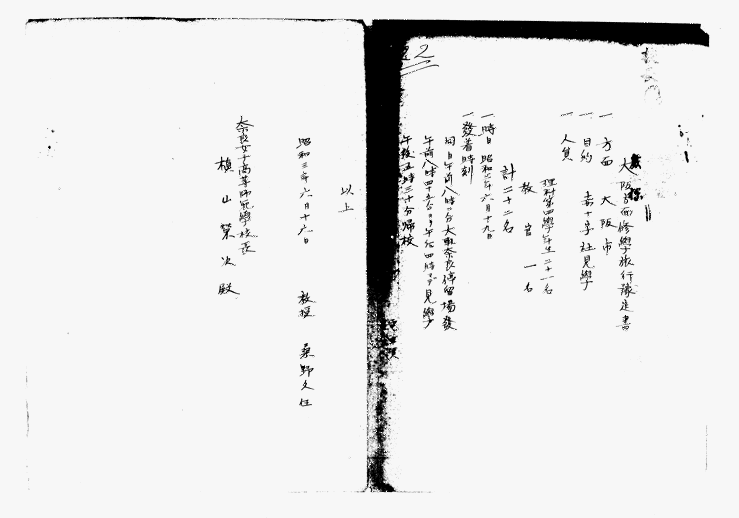 2
大阪方面修學旅行豫定書
一 方面 大阪市
一 目的 社見學
一 人員
理科第四學年生二十一名
教官 一名
計二十二名
一 時日 昭和三年六月十九日
一 發着時刻
同日午前八時 分大軌奈良停留場發
午前八時四十五分ヨリ午后四時マデ見學
午後五時三十分歸校
以上
昭和三年六月十六日
教授 桑野久任
奈良女子高等師範學校長
槇山榮次殿